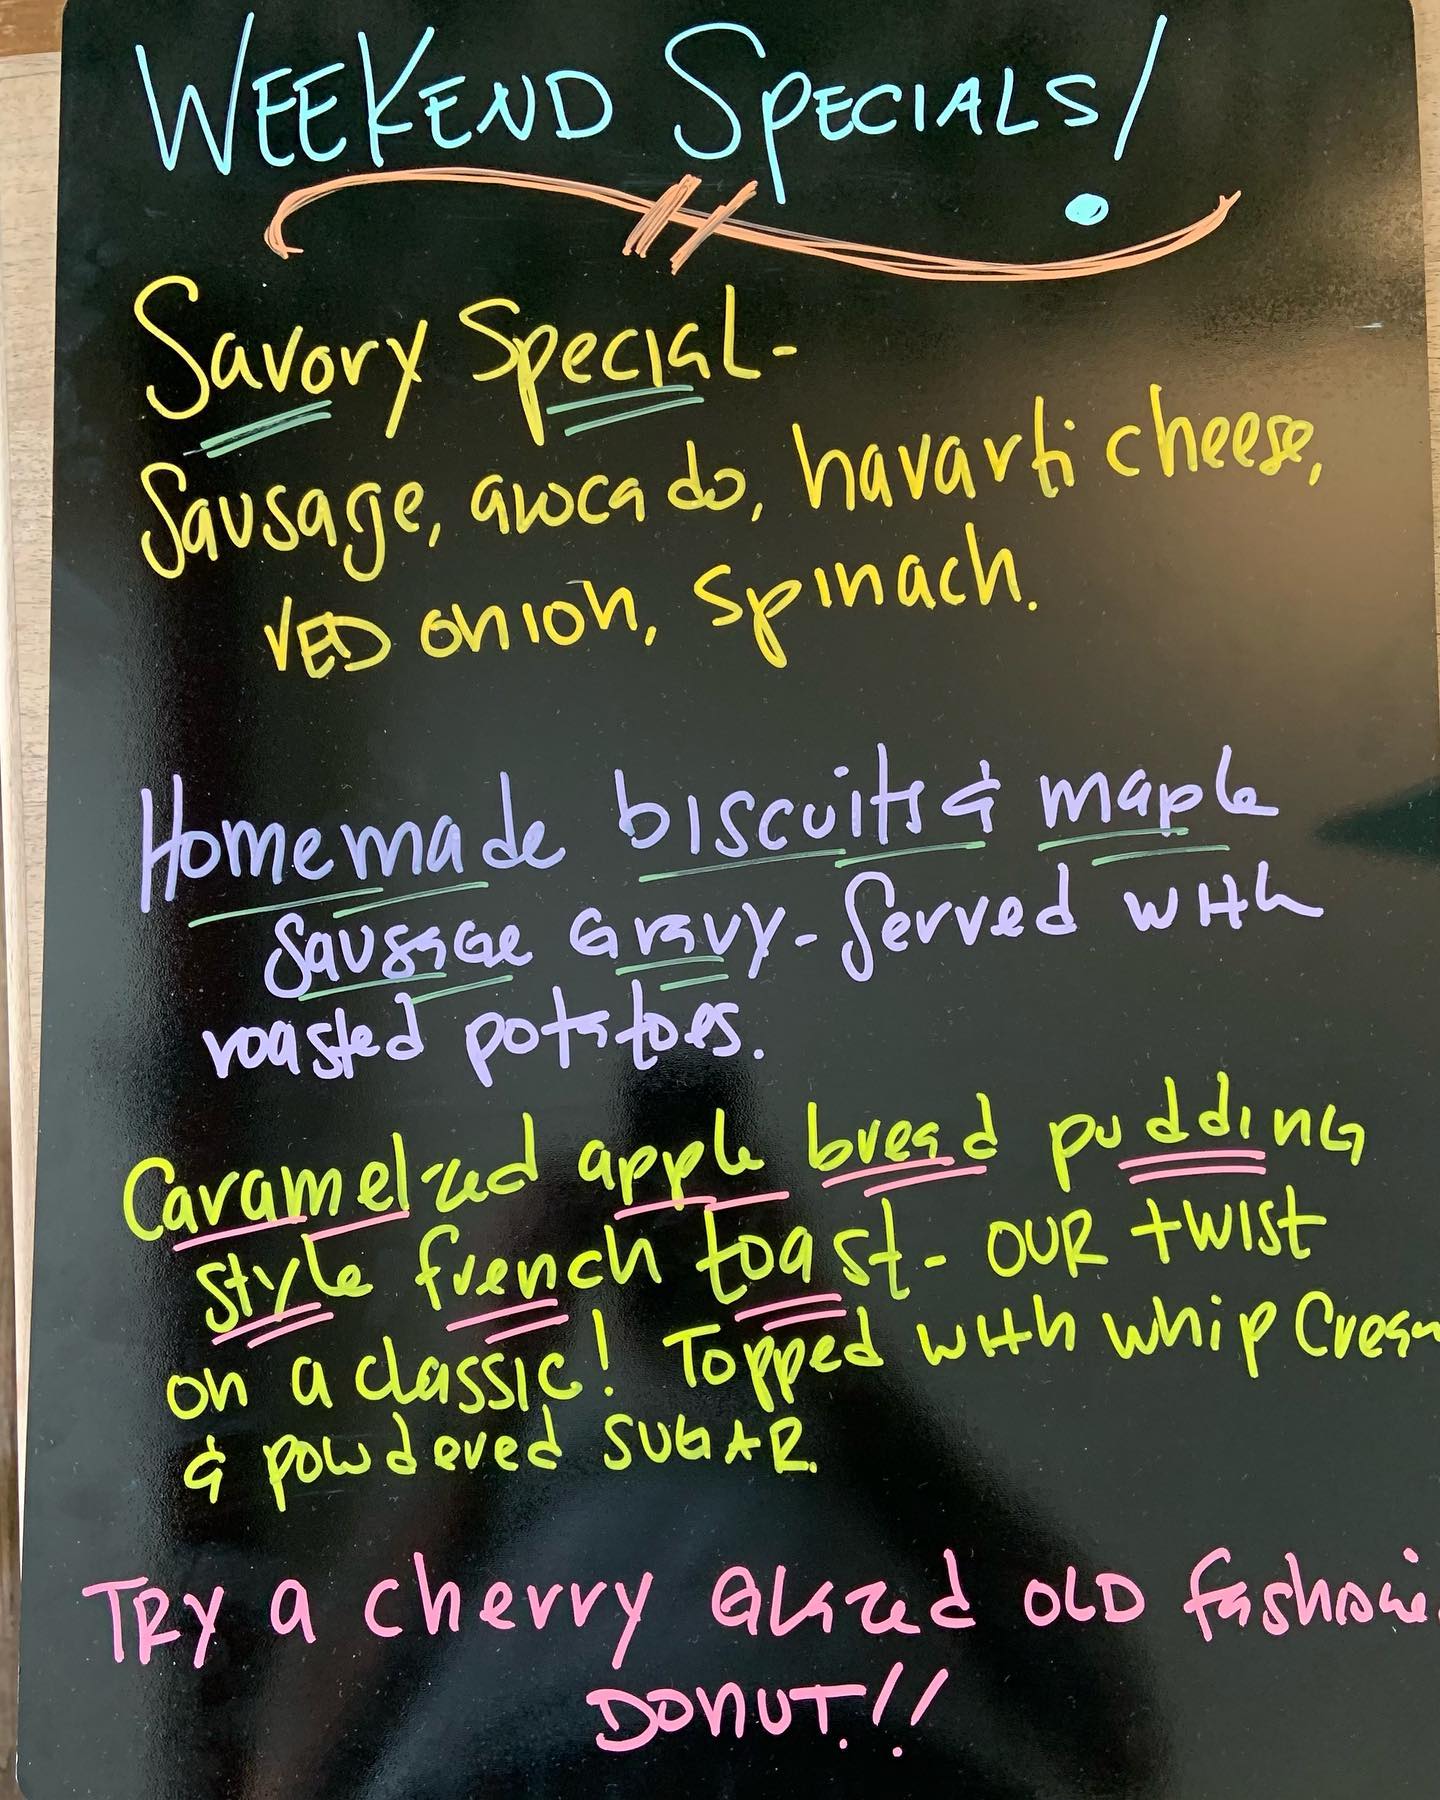 WEEKEND SPECIALS!
Savory Special-
Sausage, avocado, havarti cheese,
rED onion, spinach.
Homemade biscuits & maple
Sausage Gravy- Served with
roasted potatoes.
Caramelized apple bread pudding
style french toast- OUR twist
on a classic! Topped with whip Cream
& powdered SUGAR.
TRY a cherry Glazed OLD
DONUT!!